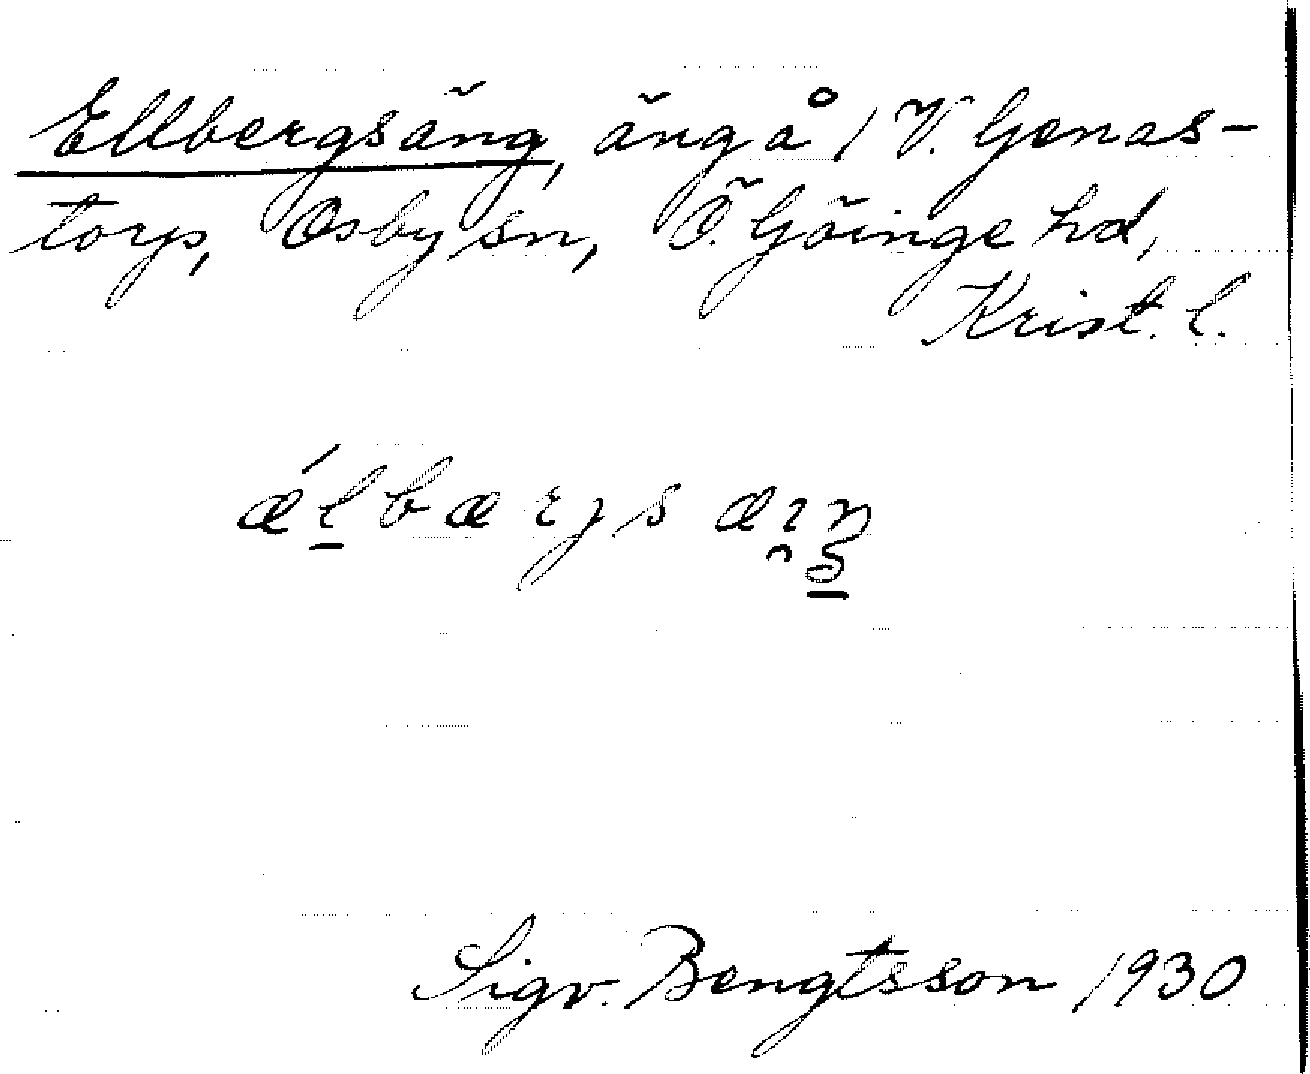 Ellbergsäng, äng å 1 V. Genas-
torp, Osby sn, Ö. Göinge hd,
Krist. l.
ǽl̲bærjsæıŋ
Sigv. Bengtsson 1930